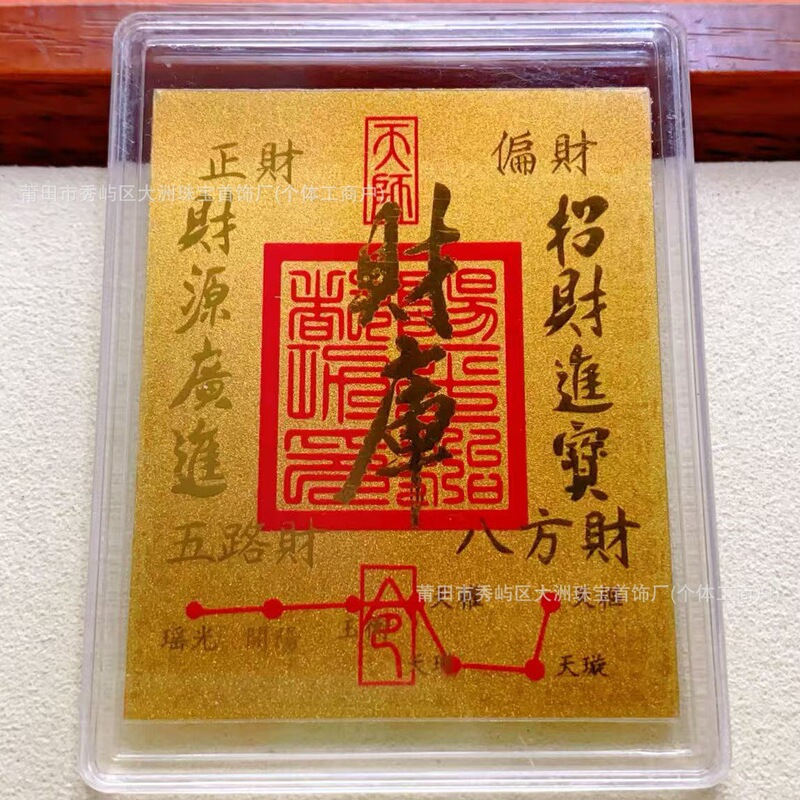 天師
正財
偏財
莆田市秀屿区大洲珠宝首饰厂(个体工商户)
財庫
財源廣進
招財進寶
五路財
八方財
莆田市秀屿区大洲珠宝首饰厂(个体工
令
瑶光
開陽
玉衡
天璇